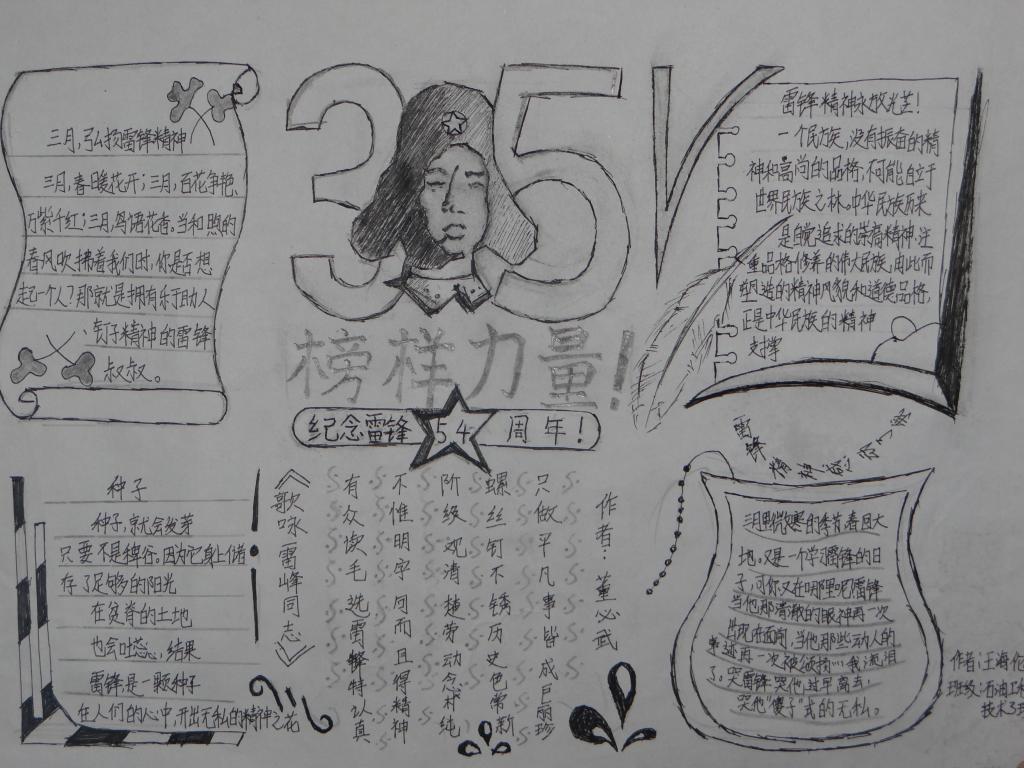 三月，弘扬雷锋精神
三月，春暖花开；三月，百花争艳、
万紫千红；三月，鸟语花香。当和煦的
春风吹拂着我们时，你是否想
起一个人？那就是拥有乐于助人
钉子精神的雷锋
叔叔。
3 5
榜样力量！
纪念雷锋54周年！
雷锋精神永放光芒！
一个民族，没有振奋的精
神和高尚的品格，不可能自立于
世界民族之林。中华民族历来
是自觉追求的崇高精神，注
重品格修养的伟大民族，由此而
塑造的精神风貌和道德品格，
正是中华民族的精神
支撑
种子
种子，就会发芽
只要不是稗谷。因为它身上储
存了足够的阳光
在贫脊的土地
也会吐蕊，结果
雷锋是一颗种子
在人们的心中，开出无私的精神之花
《歌咏雷峰同志》
有众埃毛选雷锋特认真
不惟明字句而且得精神
阶级观清楚劳动念材纯
螺丝钉不锈历史色常新
只做平凡事皆成巨丽珍
作者：董必武
雷锋精神
三月里微寒的季节，春回大
地，又是一个学习雷锋的日
子，可你又在哪里呢雷锋
当他那清澈的眼神再一次
出现在面前，当他那些动人的
事迹再一次被颂扬…我流泪
了。哭雷锋，哭他过早离去！
哭他“傻子”式的无私。
作者：汪海伦
班级：石油工程
技术3班